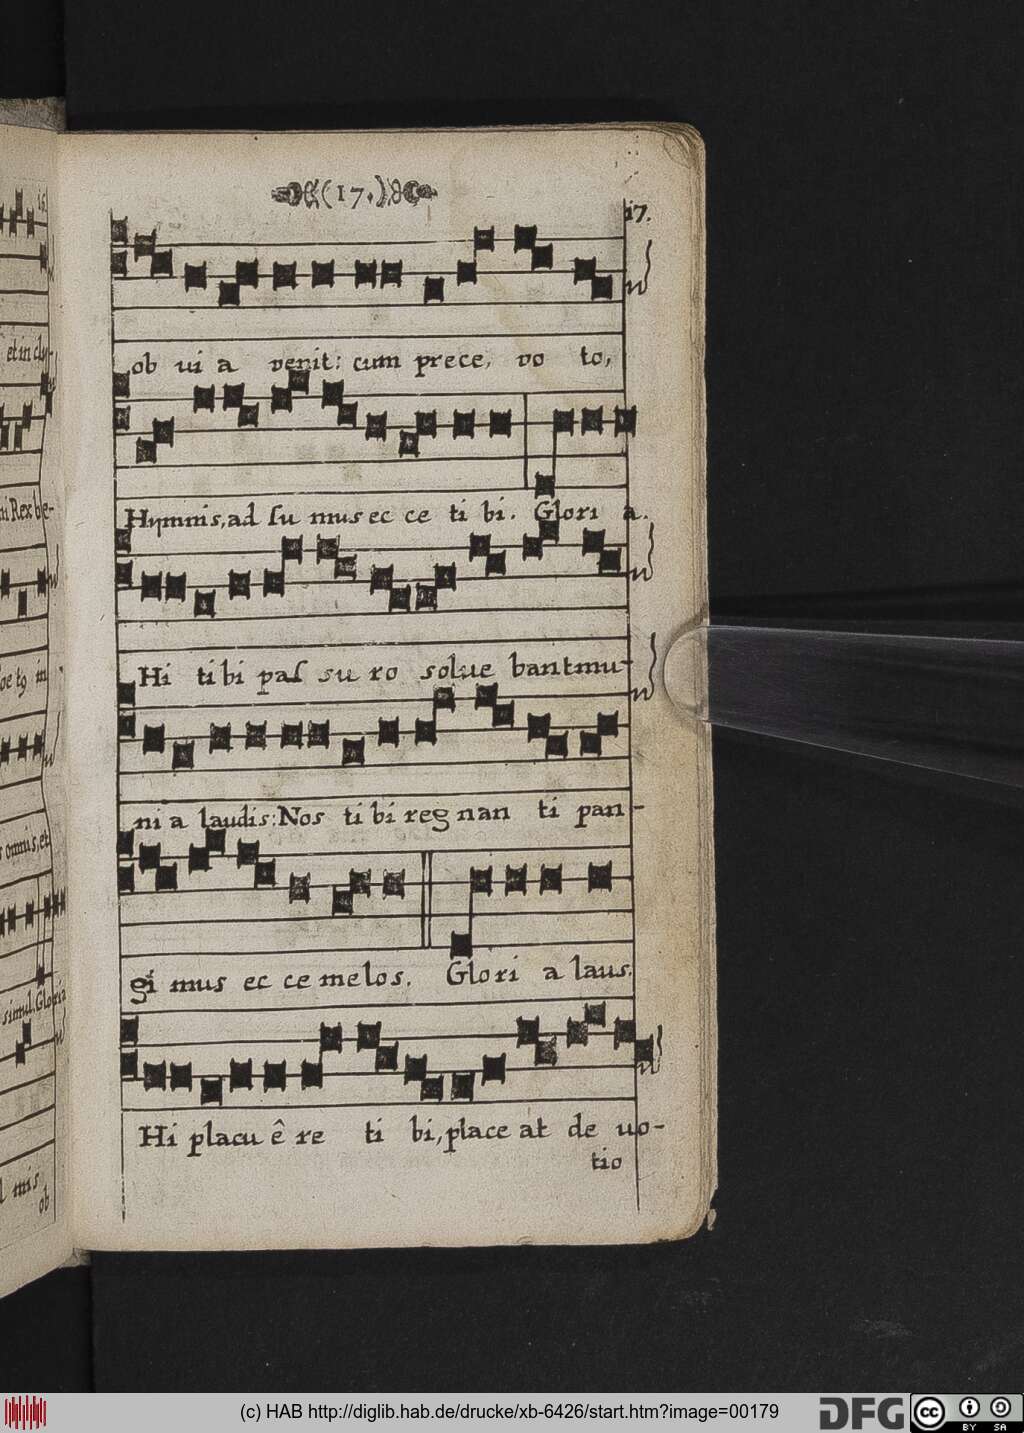 (17.)
17.
ob ui a venit: cum prece, vo to,
Hymnis, ad su mus ec ce ti bi. Glori a.
Hi ti bi pas su ro solue bant mu-
ni a laudis: Nos ti bi reg nan ti pan-
gi mus ec ce melos. Glori a laus.
Hi placu ê re ti bi, place at de uo-
tio
et in cly-
Rex be-
in
omnis, et
simul. Gloria
mis
ob
(c) HAB http://diglib.hab.de/drucke/xb-6426/start.htm?image=00179
DFG
cc BY SA